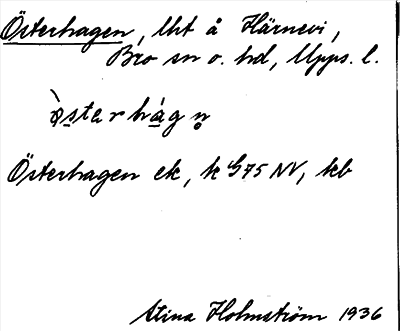 Österhagen, lht å Härnevi,
Bro sn o. hd, Upps. l.
ò̀sterhág n̥
Österhagen ek, k G75 NV, kb
Stina Holmström 1936